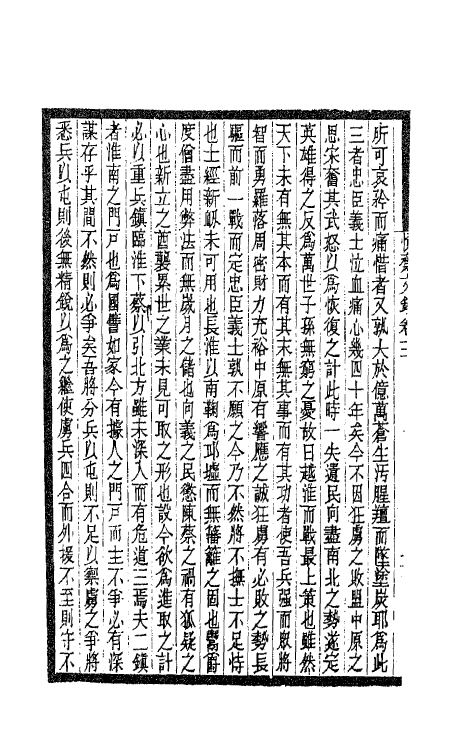 所可哀矜而痛惜者又孰大於億萬蒼生汚腥羶而墜塗炭耶爲此
三者忠臣義士泣血痛心幾四十年矣今不因狂虜之敗盟中原之
思宋奮其武怒以爲恢復之計此時一失遺民向盡南北之勢遂定
英雄得之反爲萬世子孫無窮之憂故曰越淮而戰最上策也雖然
天下未有無其本而有其末無其事而有其功者使吾兵强而眾將
智而勇羅落周密財力充裕中原有響應之誠狂虜有必敗之勢長
驅而前一戰而定忠臣義士孰不願之今乃不然將不撫士不足恃
也士經新衂未可用也長淮以南鞠爲邱墟而無籓籬之固也鬻爵
度僧盡用弊法而無歲月之儲也向義之民懲陳蔡之禍有狐疑之
心也新立之酋襲累世之業未見可取之形也設今欲爲進取之計
必以重兵鎮臨淮下蔡以引北方雖未深入而有危道三焉夫二鎮
者淮南之門戸也爲國譬如家今有據人之門戸而主不爭必有深
謀存乎其間不然則必爭矣吾將分兵以屯則不足以禦虜之爭將
悉兵以屯則後無精銳以爲之繼使虜兵四合而外援不至則守不
文 卷三